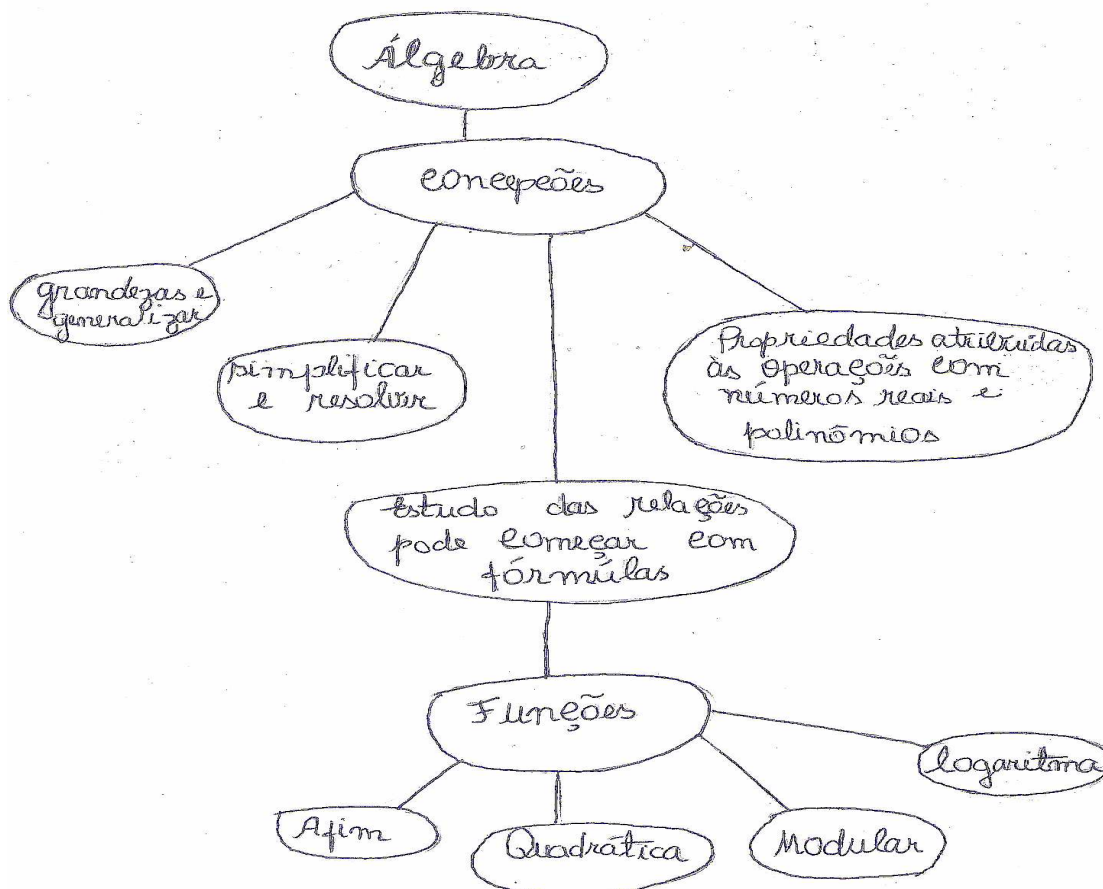 Álgebra
concepções
grandezas e
generalizar
simplificar
e resolver
Propriedades atribuídas
às operações com
números reais e
polinômios
Estudo das relações
pode começar com
fórmúlas
Funções
logaritma
Afim
Quadrática
Modular